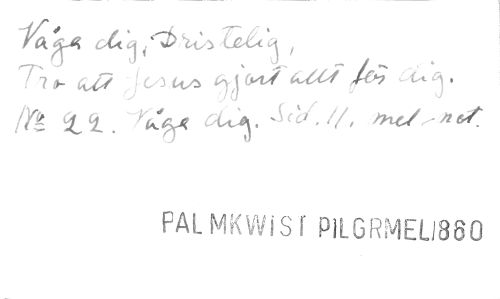 Våga dig, Dristelig,
Tro att Jesus gjort allt för dig.
No 22. Våga dig. Sid. 11. mel-not.
PALMKWIST PILGRMEL1860